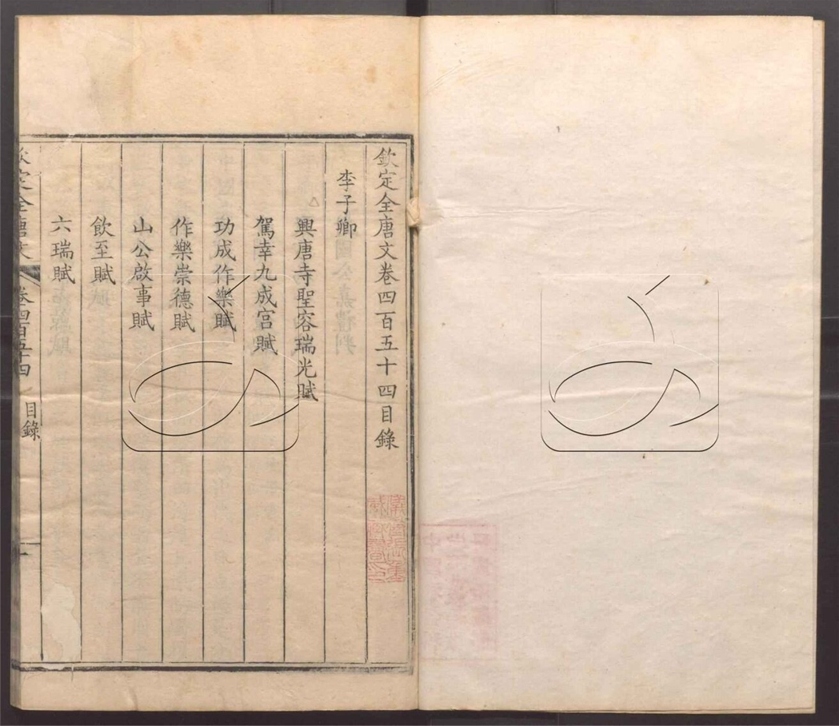 欽定全唐文卷四百五十四目錄
李子卿
興唐寺聖容瑞光賦
駕幸九成宮賦
功成作樂賦
作樂崇德賦
山公啟事賦
飲至賦
六瑞賦
欽定全唐文
卷四百五十四 目錄
一